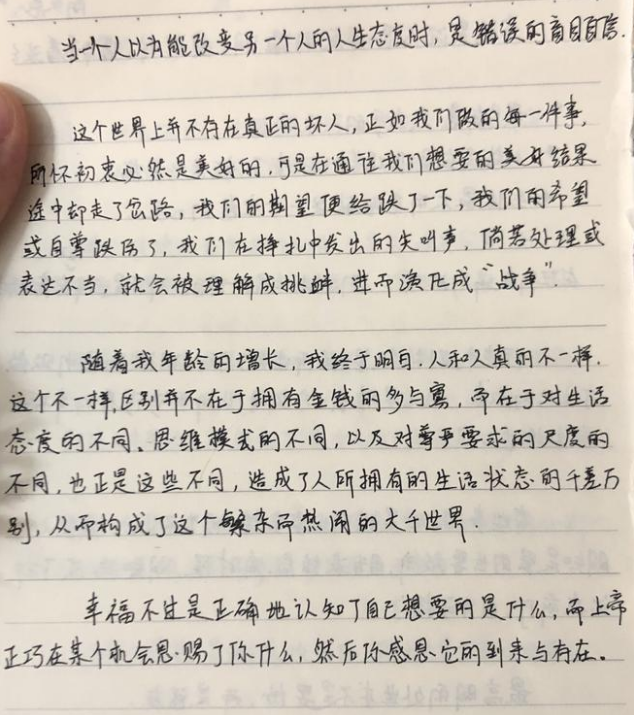 当一个人以为能改变另一个人的人生态度时,是错误的盲目自信.
这个世界上并不存在真正的坏人,正如我们做的每一件事,
所怀初衷必然是美好的,可是在通往我们想要的美好结果
途中却走了岔路,我们的期望便给跌了一下,我们的希望
或自尊跌伤了,我们在挣扎中发出的尖叫声,倘若处理或
表达不当,就会被理解成挑衅,进而演化成“战争”.
随着我年龄的增长,我终于明白,人和人真的不一样.
这个不一样,区别并不在于拥有金钱的多与寡,而在于对生活
态度的不同、思维模式的不同,以及对尊严要求的尺度的
不同,也正是这些不同,造成了人所拥有的生活状态的千差万
别,从而构成了这个繁杂而热闹的大千世界.
幸福不过是正确地认知了自己想要的是什么,而上帝
正巧在某个机会恩赐了你什么,然后你感恩它的到来与存在。